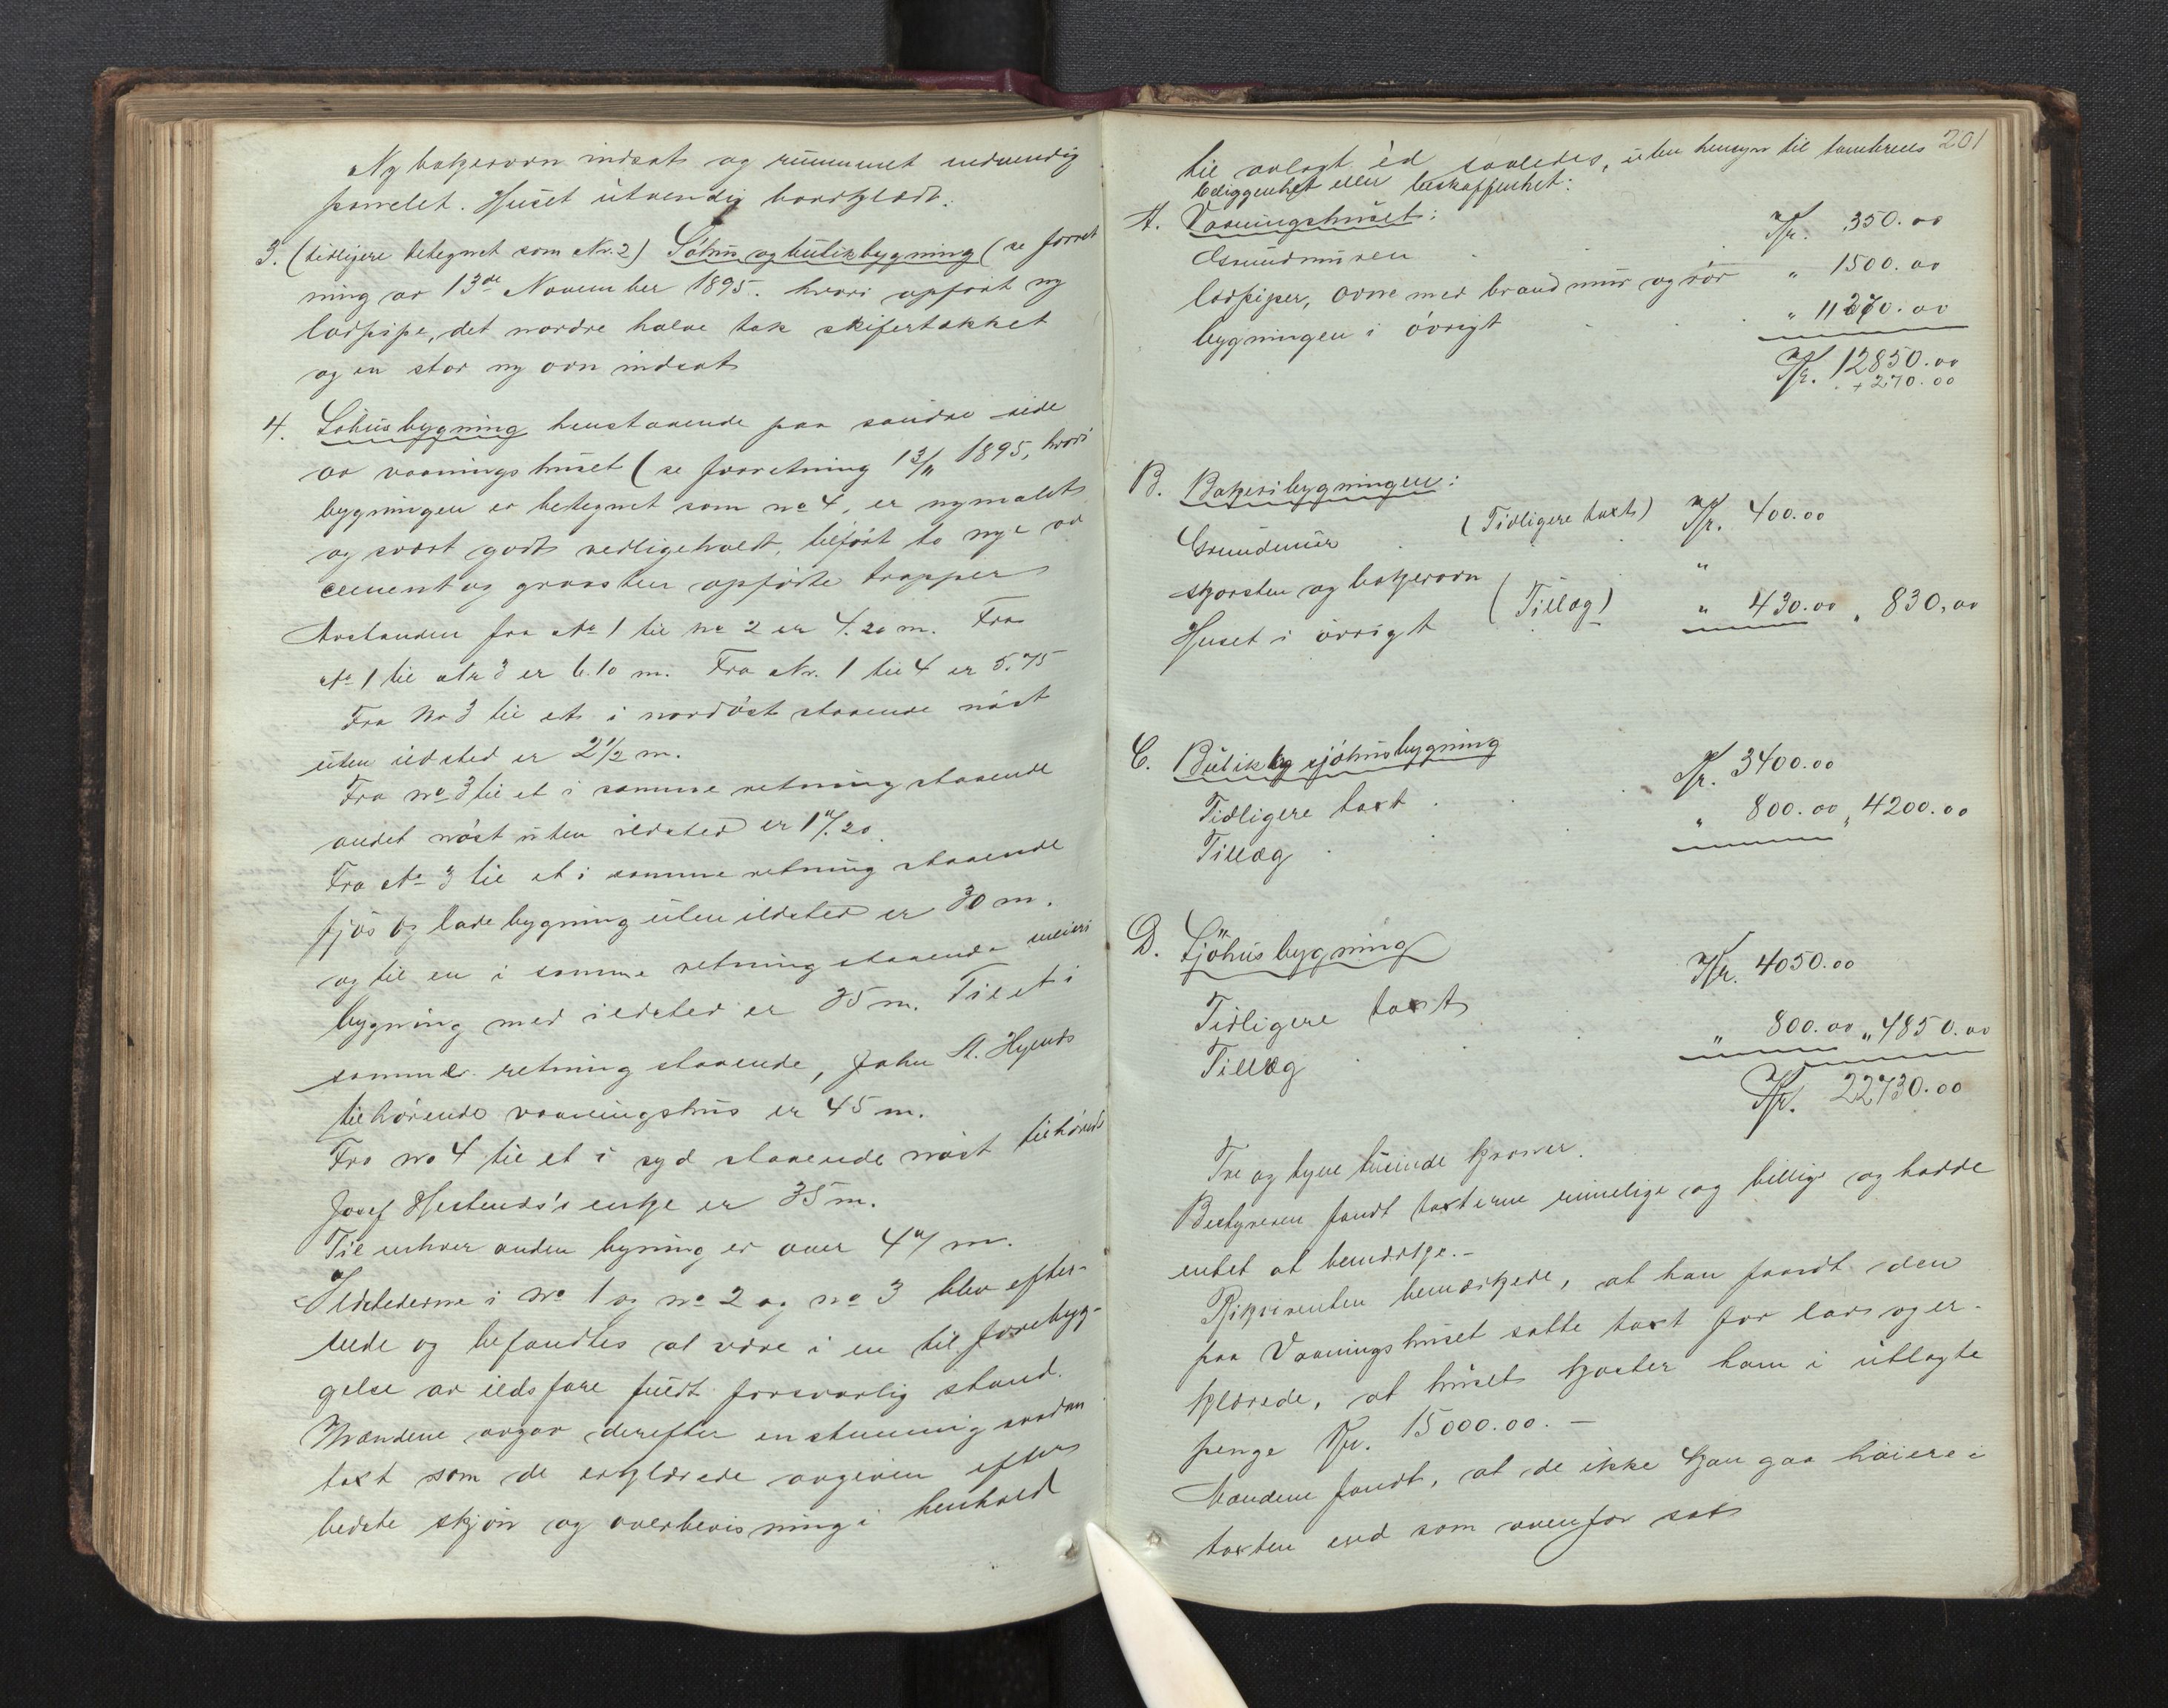 Ny bakerovn indsat og rummmet indvendig
panelet. Huset utvendig bordklædt.
3. (tidligere betegnet som Nr. 2) Söhus og butikbygning (se forret
ning av 13de November 1895. hvori opført ny
lodpipe, det nordre halve tak skifertækket
og en stor ny ovn indsat
4. Söhusbygning henstaaende paa söndre side
av vaaningshuset (se forretning 13/11 1895, hvori
bygningen er betegnet som no 4, er nymalet
og svært godt vedligeholdt, tilført to nye av
cement og graasten opførte trapper
Avstanden fra No 1 til no 2 er 4.20 m. Fra
No 1 til No 3 er 6.10 m. Fra Nr. 1 til 4 er 5.75
Fra No 3 til et i nordöst staaende nöst
uten ildsted er 2 1/2 m.
Fra no 3 til et i samme retning staaende
andet nöst uten ildsted er 17.20
Fra No 3 til et i samme retning staaende
fjös og ladebygning uten ildsted er 30 m.
og til en i samme retning staaende meieri
bygning med ildsted er 35 m. Til et i
samme retning staaende, John A. Hjends
tilhörende vaaningshus er 45 m.
Fra no 4 til et i syd staaende nöst tilhörende
Josef Hestends's enke er 35 m.
Til enhver anden byning er over 47 m.
Ildstederne i No 1 og no 2 og no 3 blev efter-
seede og befandtes at være i en til forebyg-
gelse av ildsfare fuldt forsvarlig stand.
Mændene avgav derefter enstemmig saadan
takst som de erklærede avgiven efter
bedste skjön og overbevisning i henhold
201
til avlagt éd saaledes, uten hensyn til tomtenes
beliggenhet eller beskaffenhet:
A. Vaaningshuset:
Grundmuren Kr. 350.00
Lodpiper, ovne med brandmur og rör " 1500.00
bygningen i övrigt " 11270.00
Kr. 12850.00
+ 270.00
B. Bakeribygningen:
Grundmur (Tidligere taxt) Kr. 400.00
skorsten og bakerovn "
Huset i övrigt (Tillæg) " 430.00 " 830,00
C. Butik og sjöhusbygning
Tidligere taxt Kr. 3400.00
Tillæg " 800.00 " 4200.00
D. Sjöhusbygning
Tidligere taxt Kr. 4050.00
Tillæg " 800.00 " 4850.00
Kr. 22730.00
Tre og tyve tusinde kroner.
Bestyreren fandt taxterne rimelige og billige og hadde
intet at bemærke.-
Rekvirenten bemærkede, at han fandt den
paa Vaaningshuset satte taxt for lav og er-
klærede, at huset koster ham i utlagte
penge Kr. 15000.00.—
Mændene fandt, at de ikke kan gaa höiere i
taxten end som ovenfor sat